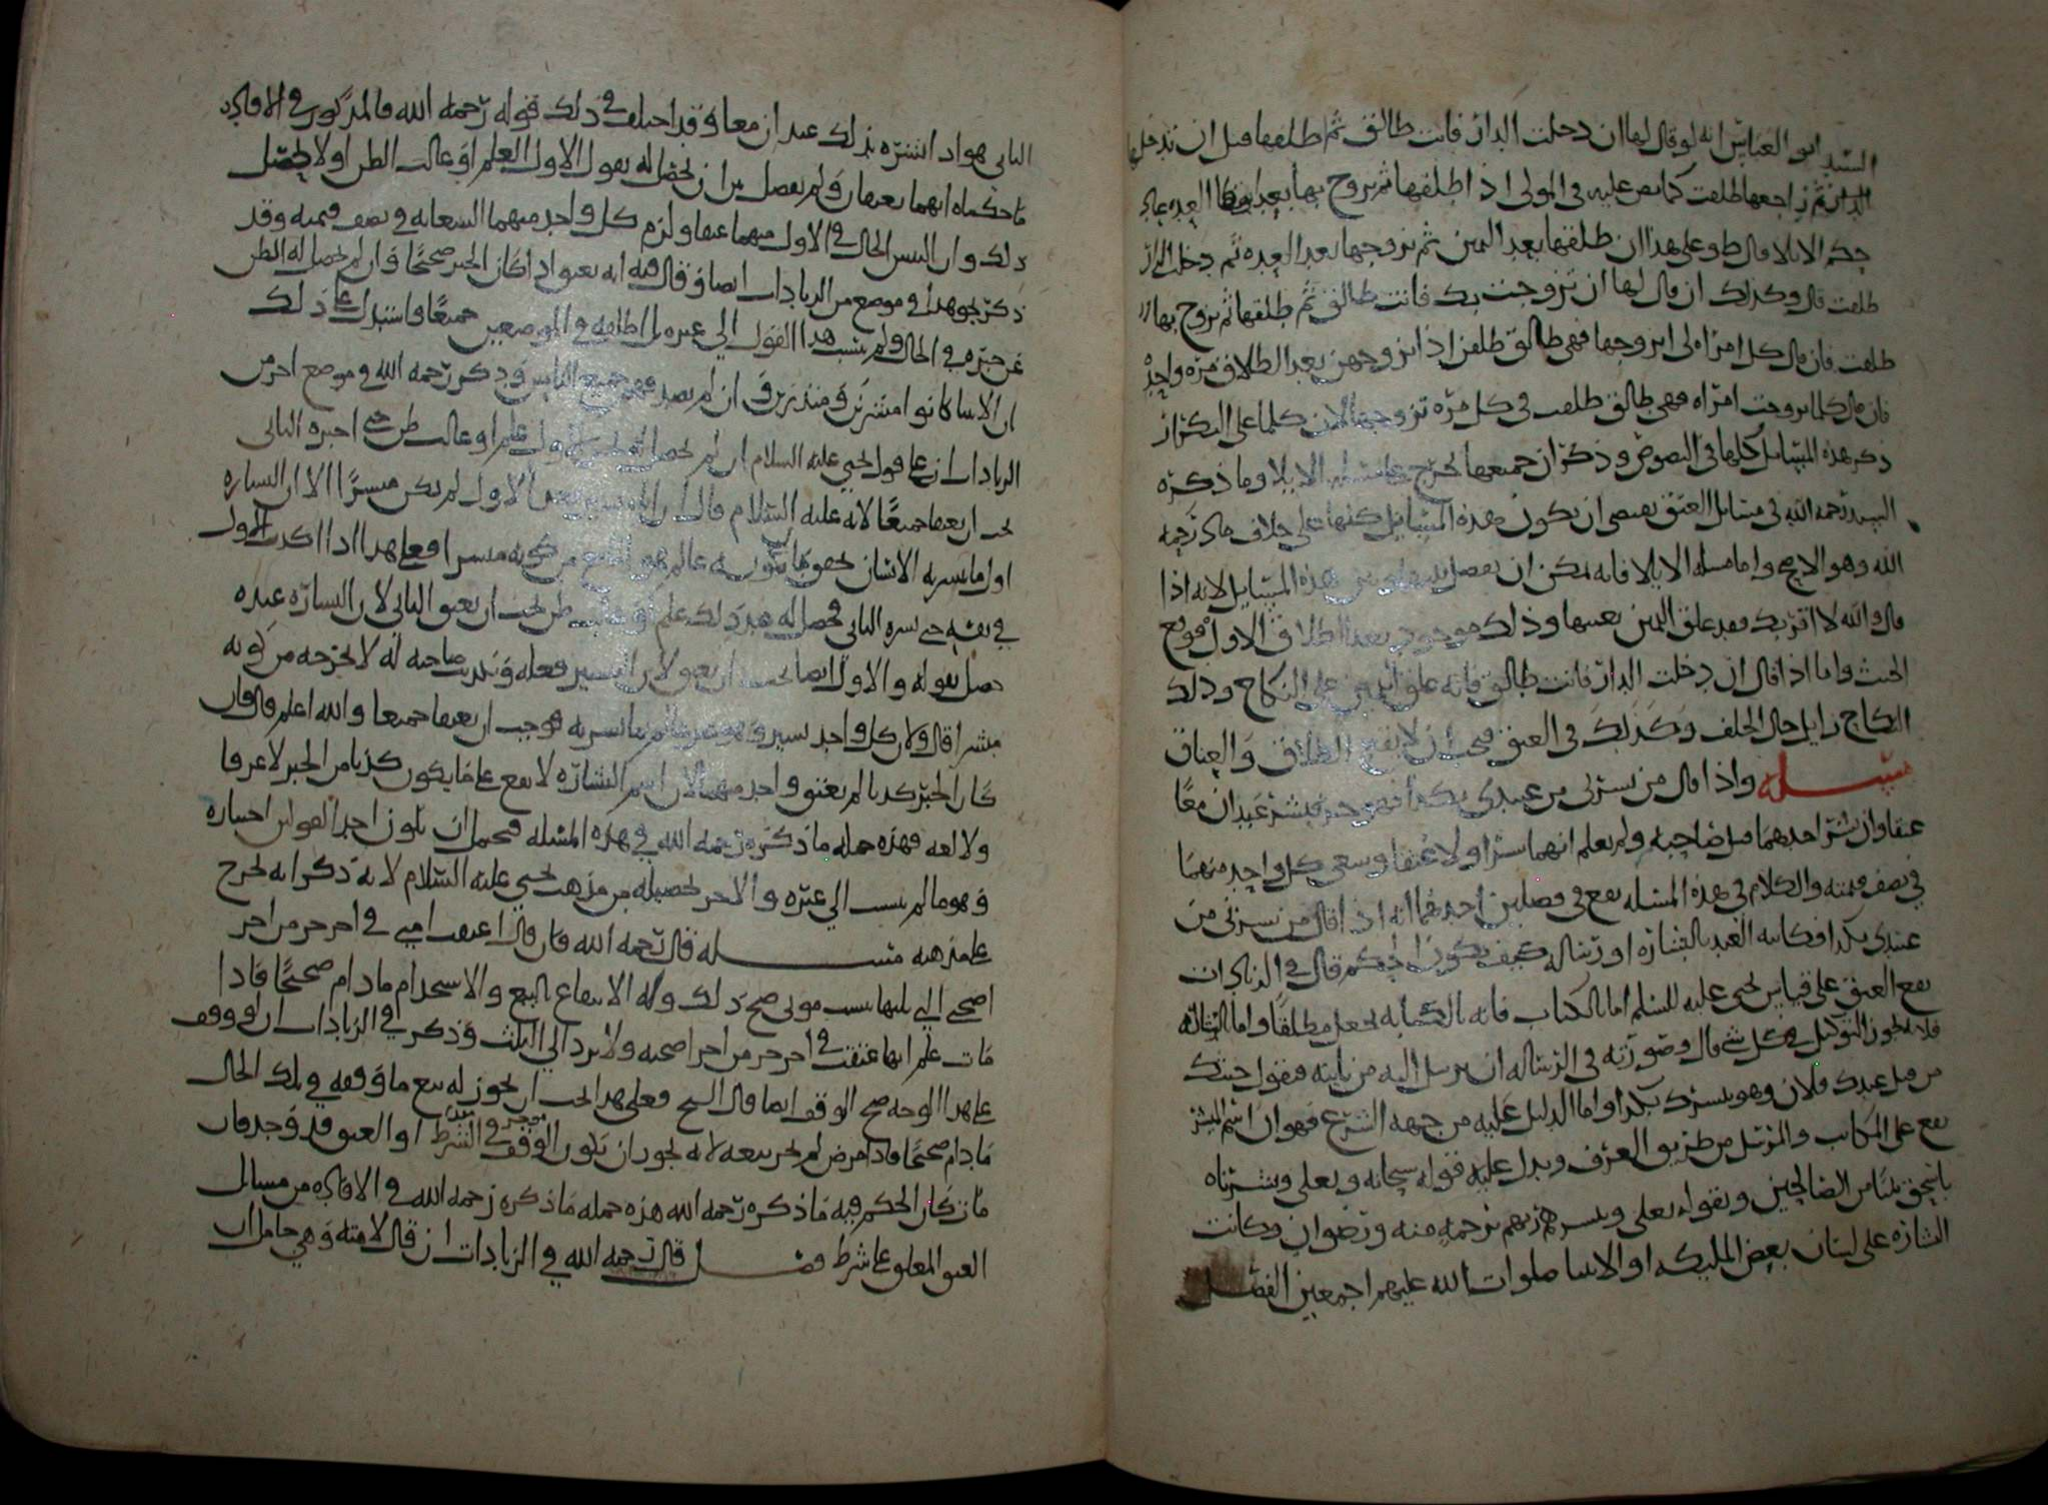 السيد ابو العباس انه لو قال لها ان دخلت الدار فانت طالق ثم طلقها قبل ان تدخل
الدار ثم راجعها طلقت كما نص عليه في المولى اذا طلقها ثم تزوج بها بعد العده عاد
حكم الايلا قال ط وعلى هذا ان طلقها بعد اليمين ثم تزوجها بعد العده ثم دخلت الدار
طلقت قال وكذلك ان قال لها ان تزوجت بك فانت طالق ثم طلقها ثم تزوج بها
طلقت فان قال كل امراه لي اتزوجها فهي طالق طلقن اذا تزوجهن بعد الطلاق مره واحده
فان قال كلما تزوجت امراه فهي طالق طلقت في كل مره تزوجها لان كلما على التكرار
ذكر هذه المسايل كلها في النصوص وذكر ان جميعها تخرج على الايلا وما ذكره
السيد رحمه الله في مسايل العتق يقتضي ان يكون هذه المسايل كلها على خلاف ما ذكر رحمه
الله وهو الاصح واما مسله الايلا فانه يمكن ان يفصل بينها وبين هذه المسايل لانه اذا
قال والله لا اقربك فقد علق اليمين بعينها وذلك موجود بعد الطلاق الاول فوقع
الحنث واما اذا قال ان دخلت الدار فانت طالق فانه علق اليمين على النكاح وذلك
النكاح زايل حال الحلف وكذلك في العتق فيجب ان لا يقع الطلاق والعتاق
مسله واذا قال من بشرني من عبيدي بكذا فهو حر فبشره عبدان معا
عتقا وان بشر احدهما قبل صاحبه ولم يعلم ايهما بشر اولا عتقا وسعى كل واحد منهما
في نصف قيمته والكلام في هذه المسله يقع في فصلين احدهما انه اذا قال من بشرني من
عبيدي بكذا فكاتبه العبد بالبشاره او رساله كيف يكون الحكم قال في الزيادات
يقع العتق على قياس يحيى عليه السلم اما الكتاب فانه بالكتابه يحصل مطلقا واما الرساله
فلانه يجوز التوكيل في كل شي قال وصورته في الرساله ان يرسل اليه من ياتيه فيقول جيتك
من قبل عبدك فلان وهو يبشرك بكذا واما الدليل عليه من جهه الشرع فهو ان اسم المبشر
يقع على المكاتب والمرسل من طريق العرف ويدل عليه قوله سبحانه وتعلى وبشرناه
باسحق نبيا من الصالحين وبقوله تعلى ويبشرهم ربهم برحمه منه ورضوان وكانت
البشاره على لسان بعض المليكه او الانبيا صلوات الله عليهم اجمعين الفصل
الثاني هو اذا بشره بذلك عبدان معا وقد اختلف في ذلك قوله رحمه الله فالمذكور في الافاده
ما حكيناه انهما يعتقان ولم يفصل بين ان يحصل له بقول الاول العلم او غالب الظن او لا يحصل
ذلك وان التبس الحال في الاول منهما عتقا ولزم كل واحد منهما السعايه في نصف قيمته وقد
ذكر نحو هذا في موضع من الزيادات ايضا وقال فيه انه يعتق اذا كان الخبر صحيحا وان لم يحصل له الظن
عن خبره في الحال ولم ينسب هذا القول الى غيره بل اطلقه في الموضعين جميعا واستدل على ذلك
ان الانبيا كانوا مبشرين ومنذرين وان لم يصدقهم جميع الناس وذكر رحمه الله في موضع اخر من
الزيادات ان على قول يحيى عليه السلام ان لم يحصل له بخبر الاول علم او غالب ظن حتى اخبره الثاني
يجب ان يعتقا جميعا لانه عليه السلام قال لان الاول لم يكن مبشرا الا ان البشاره
اول ما يسر به الانسان
في نفسه حتى بشره الثاني فحصل له عند ذلك علم او غالب ظن يجب ان يعتق الثاني لان البشاره عنده
حصل بقوله والاول ايضا يجب ان يعتق لان التبشير فعله وتكذيب صاحبه له لا يخرجه من كونه
مبشرا قال ولان كل واحد فوجب ان يعتقا جميعا والله اعلم قال فان
كان الخبر كذبا لم يعتق واحد منهما لان اسم البشاره لا يقع على ما يكون كذبا من الخبر لا عرفا
ولا لغه فهذه جمله ما ذكره رحمه الله في هذه المسله فيحمل ان يكون احد القولين اختياره
وهو ما لم ينسب الى غيره والاخر تحصيله من مذهب يحيى عليه السلام لانه ذكر انه تخرج
على مذهبه مسله قال رحمه الله فان قال اعتقت امتي في اخر جزء من اجزا
صحتي التي يليها سبب موتي صح ذلك وله الانتفاع بالبيع والاستخدام ما دام صحيحا فاذا
مات علم انها عتقت في اخر جزء من اجزا صحته ولا يرد الى الثلث وذكر في الزيادات ان لو وقف
على هذا الوجه صح الوقف ايضا قال السيد فعلى هذا يجب ان يجوز له بيع ما وقفه في تلك الحال
ما دام صحيحا فاذا مرض لم يجز بيعه لانه يجوز ان يكون الوقف الشرط او العتق قد وجد فان
مات كان الحكم فيه ما ذكره رحمه الله هذه جمله ما ذكره رحمه الله في الافاده من مسايل
العتق المعلق على شرط فصل قال رحمه الله في الزيادات ان قال لامته وهي حامل ان